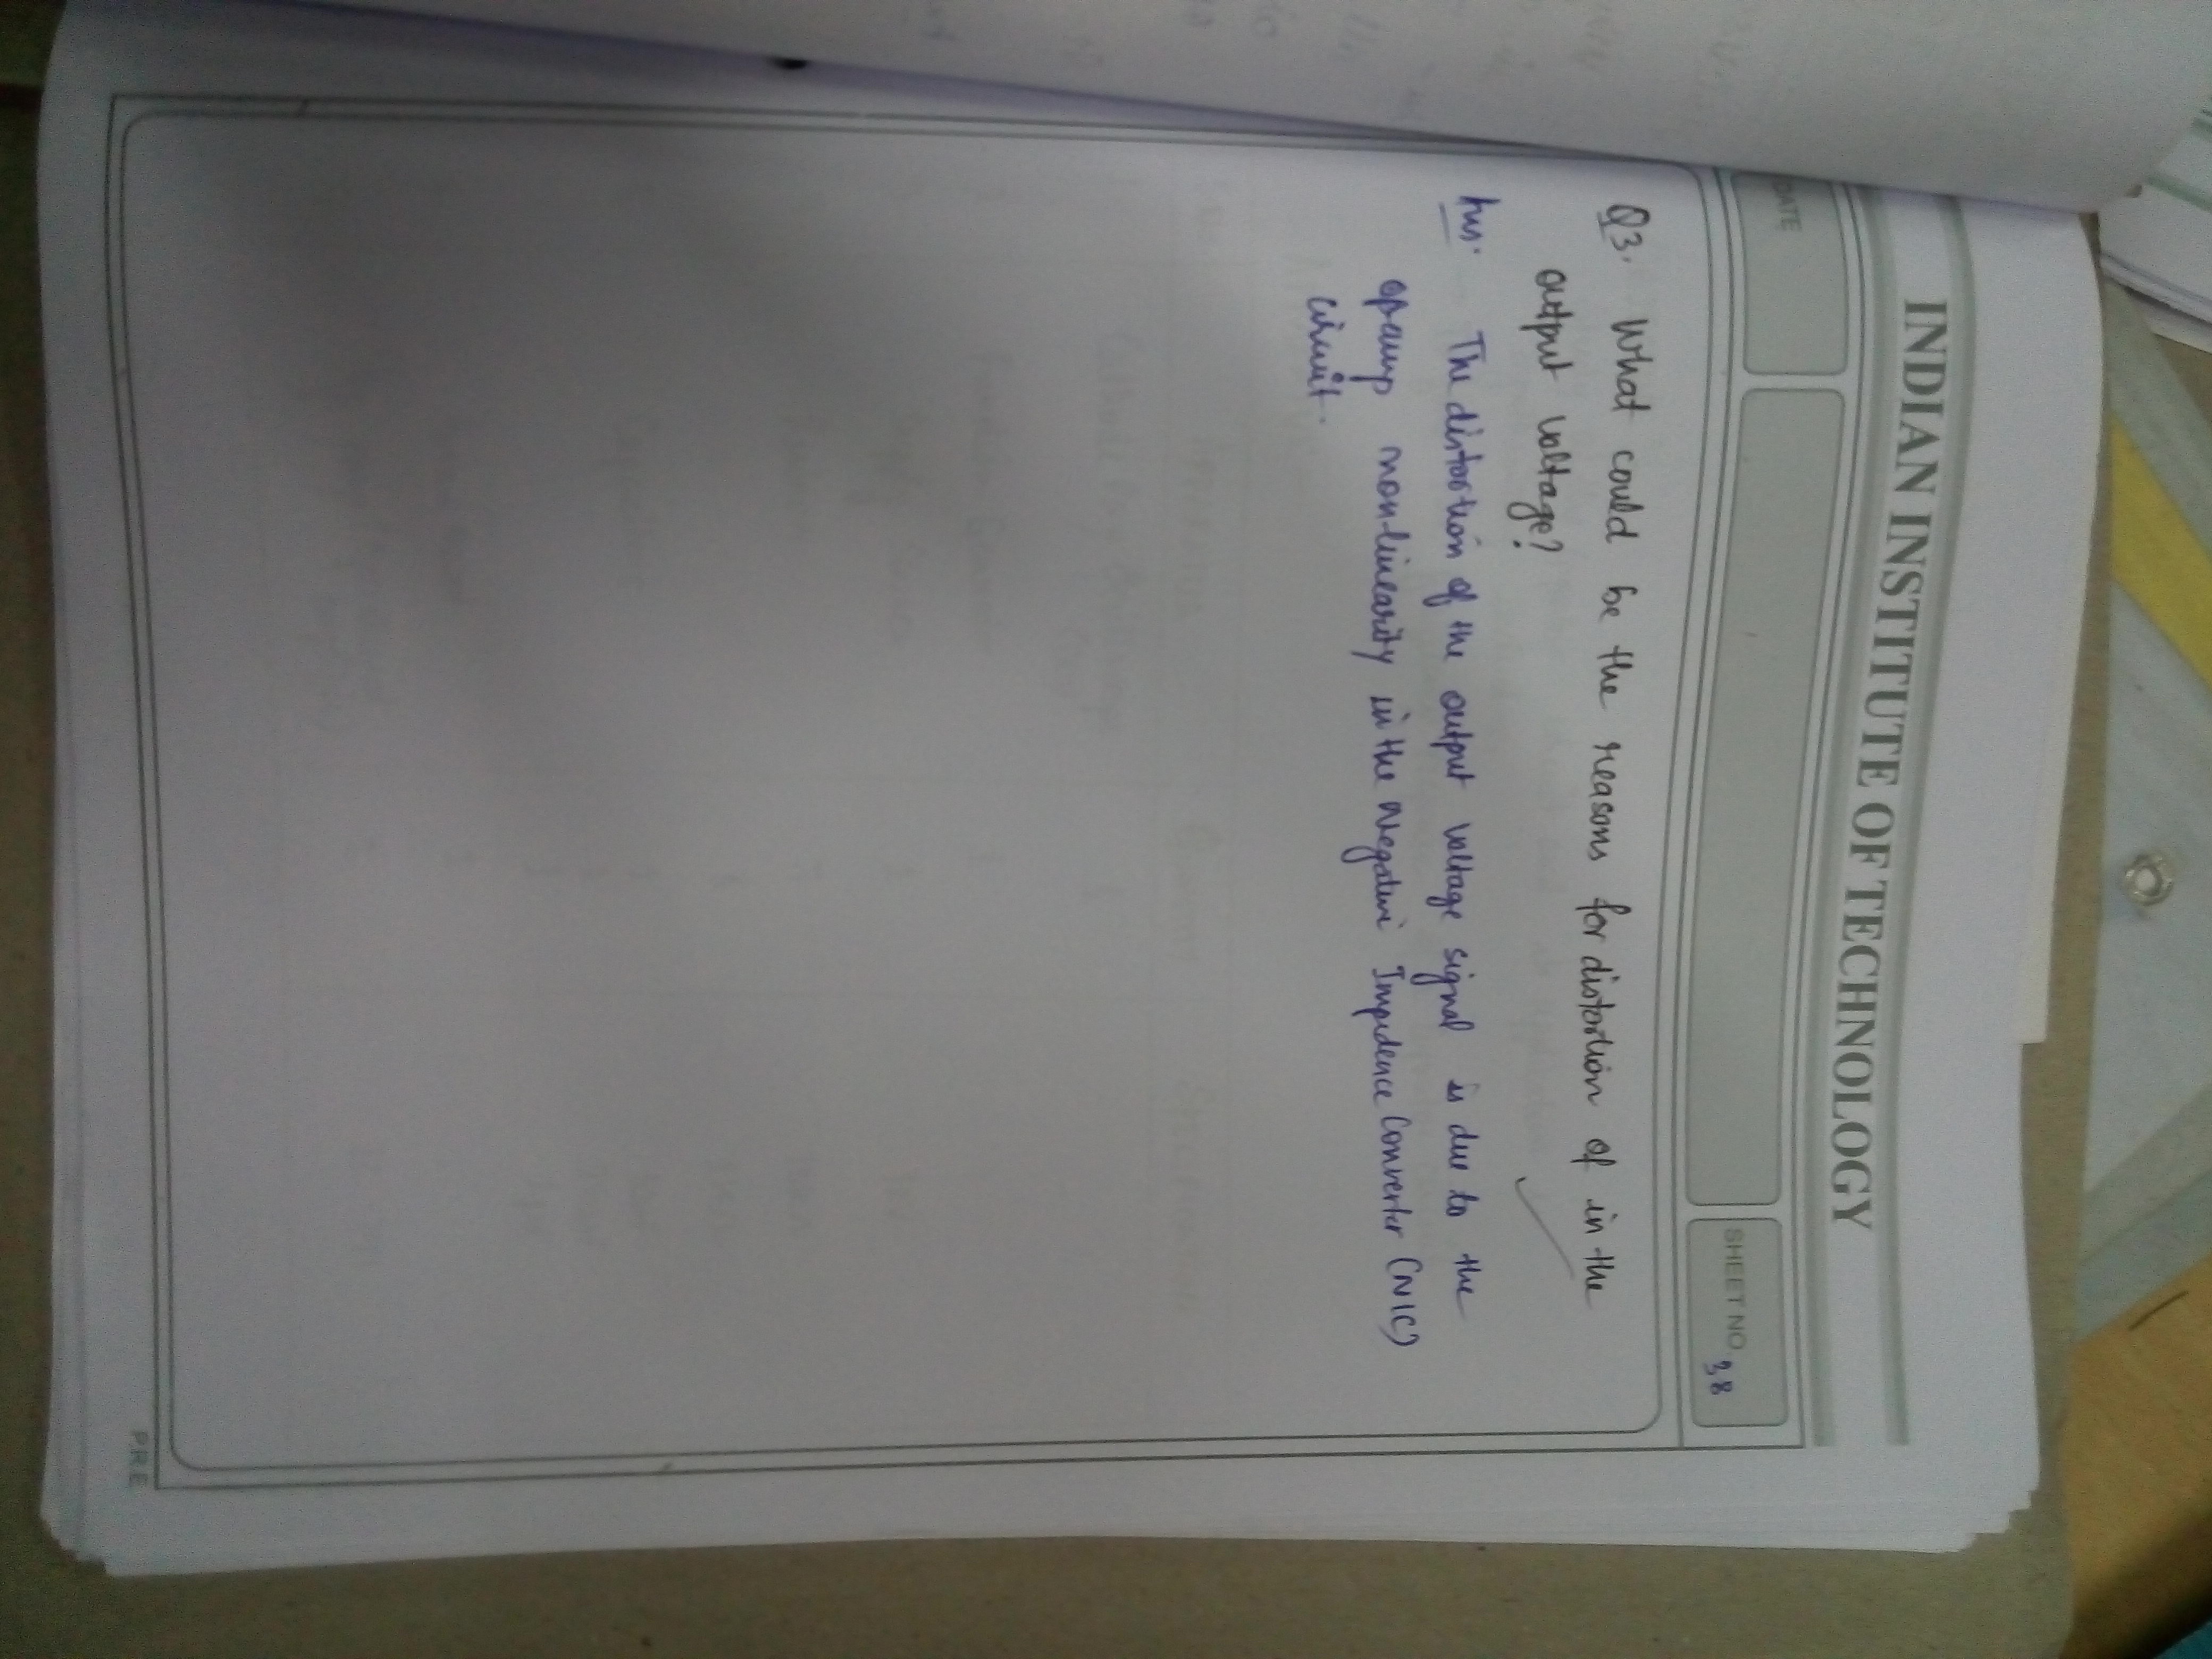 INDIAN INSTITUTE OF TECHNOLOGY
DATE
SHEET NO. 38
Q3. What could be the reasons for distortion of in the
output voltage?
Ans. The distortion of the output voltage signal is due to the
opamp non-linearity in the Negative Impedence Converter (NIC)
circuit.
P.R.E